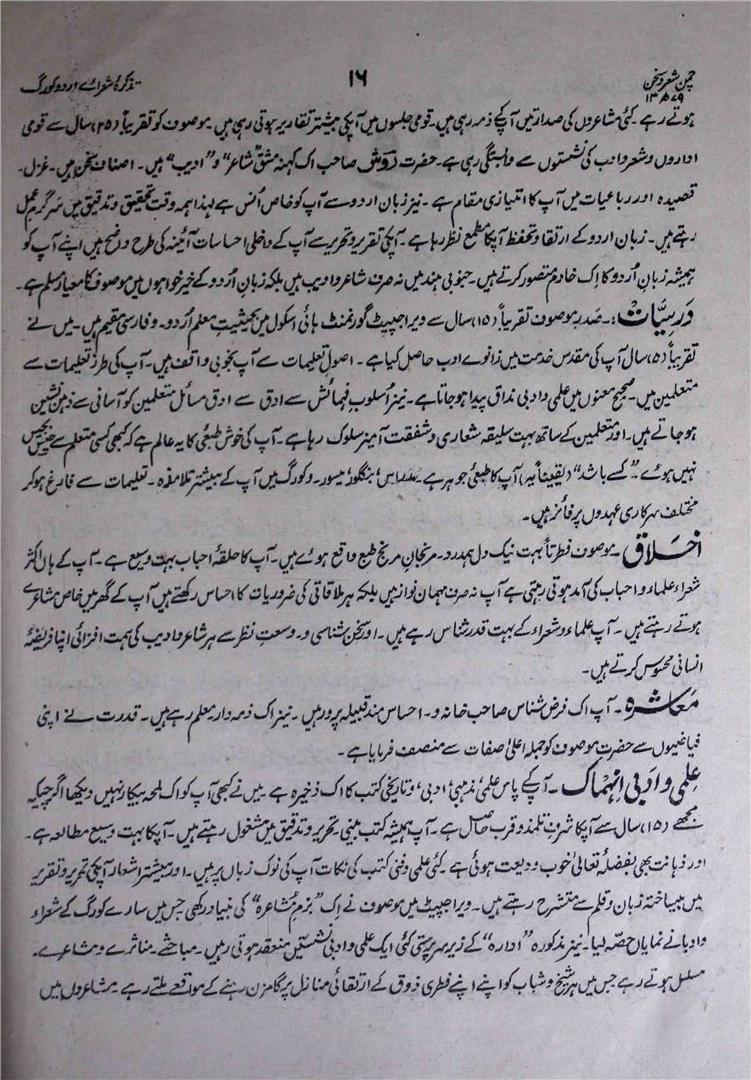 چمن شعر و سخن ۱۶ تذکرۂ شعرائے اردو کورگ
۱۳۷۹ھ
ہوتے رہے۔ کئی مشاعروں کی صدارتیں آپکے ذمہ رہی ہیں۔ قومی جلسوں میں آپکی بیشتر تقاریر ہوتی رہی ہیں۔ موصوف کو تقریباً (۲۵) سال سے قومی
اداروں و شعر و ادب کی نشستوں سے وابستگی رہی ہے۔ حضرت روش صاحب اک کہنہ مشق "شاعر" و "ادیب" ہیں۔ اصناف سخن میں۔ غزل۔
قصیدہ اور رباعیات میں آپ کا امتیازی مقام ہے۔ نیز زبان اردو سے آپ کو خاص اُنس ہے لہذا ہمہ وقت تحقیق و تدقیق میں سرگرم عمل
رہتے ہیں۔ زبان اردو کے ارتقاء و تحفظ آپکا مطمع نظر رہا ہے۔ آپکی تقریر و تحریر سے آپ کے داخلی احساسات آئینہ کی طرح واضح ہیں اپنے آپ کو
ہمیشہ زبان اُردو کا اِک خادم تصور کرتے ہیں۔ جنوبی ہند میں نہ صرف شاعر و ادیب ہیں بلکہ زبان اُردو کے خیر خواہوں میں موصوف کا معیار مسلم ہے۔
دَرسیّات:۔ صدر موصوف تقریباً (۱۵) سال سے ویراجپیٹ گورنمنٹ ہائی اسکول میں بحیثیت معلم اُردو۔ و فارسی مقیم ہیں۔ میں نے
تقریباً (۵) سال آپ کی مقدس خدمت میں زانوے ادب حاصل کیا ہے۔ اصول تعلیمات سے آپ بخوبی واقف ہیں۔ آپ کی طرز تعلیمات سے
متعلمین میں۔ صحیح معنوں میں علمی و ادبی مذاق پیدا ہو جاتا ہے۔ نیز اُسلوب فہمائش سے ادق سے ادق مسائل متعلمین کو آسانی سے ذہن نشین
ہو جاتے ہیں۔ اور متعلمین کے ساتھ بہت سلیقہ شعاری و شفقت آمیز سلوک رہا ہے۔ آپ کی خوش طبعی کا یہ عالم ہے کہ کبھی کسی متعلم سے چیں بجبیں
نہیں ہوئے۔ "کسے باشد" (یقیناً یہ) آپ کا طبعی جوہر ہے۔ مدراس، بنگلور، میسور۔ و کورگ میں آپ کے بیشتر تلامذہ۔ تعلیمات سے فارغ ہو کر
مختلف سرکاری عہدوں پر فائز ہیں۔
اخلاق۔ موصوف فطرتاً بہت نیک دل ہمدرد۔ مرنجان مرنج طبع واقع ہوے ہیں۔ آپ کا حلقۂ احباب بہت وسیع ہے۔ آپ کے ہاں اکثر
شعراء علماء و احباب کی آمد ہوتی رہتی ہے آپ نہ صرف مہمان نواز ہیں بلکہ ہر ملاقاتی کی ضروریات کا احساس رکھتے ہیں آپ کے گھر میں خاص مشاعرے
ہوتے رہتے ہیں۔ آپ علماء و شعراء کے بہت قدر شناس رہے ہیں۔ اور سخن شناسی و۔ وسعت نظر سے ہر شاعر و ادیب کی ہمت افزائی اپنا فریضۂ
انسانی محسوس کرتے ہیں۔
معاشرہ۔ آپ اک فرض شناس صاحب خانہ و۔ احساس مند قبیلہ پرور ہیں۔ نیز اک ذمہ دار معلم رہے ہیں۔ قدرت نے اپنی
فیاضیوں سے حضرت موصوف کو جملہ اعلیٰ صفات سے متصف فرمایا ہے۔
علمی و ادبی انہماک۔ آپ کے پاس علمی، مذہبی، ادبی، و تاریخی کتب کا اک ذخیرہ ہے۔ میں نے کبھی آپ کو اک لمحہ بیکار نہیں دیکھا اگرچیکہ
مجھے (۱۵) سال سے آپکا شرف تلمذ و قرب حاصل ہے۔ آپ ہمیشہ کتب بینی۔ تحریر و تدقیق میں مشغول رہتے ہیں۔ آپکا بہت وسیع مطالعہ ہے۔
اور ذہانت بھی بفضلہ تعالیٰ خوب ودیعت ہوئی ہے۔ کئی علمی و فنی کتب کی نکات آپ کی نوک زباں پر ہیں۔ اور بیشتر اشعار آپکی تحریر و تقریر
میں بیساختہ زبان و قلم سے مترشح رہتے ہیں۔ ویراجپیٹ میں موصوف نے اک "بزم مشاعرہ" کی بنیاد رکھی جس میں سارے کورگ کے شعراء
و ادبا نے نمایاں حصہ لیا۔ نیز مذکورہ "ادارہ" کے زیر سرپرستی کئی ایک علمی و ادبی نشستیں منعقد ہوتی رہیں۔ مباحثے۔ مناثرے و مشاعرے۔
مسلسل ہوتے رہے جس میں ہر شیخ و شباب کو اپنے اپنے فطری ذوق کے ارتقائی منازل پر گامزن رہنے کے مواقعے ملتے رہے۔ مشاعروں میں